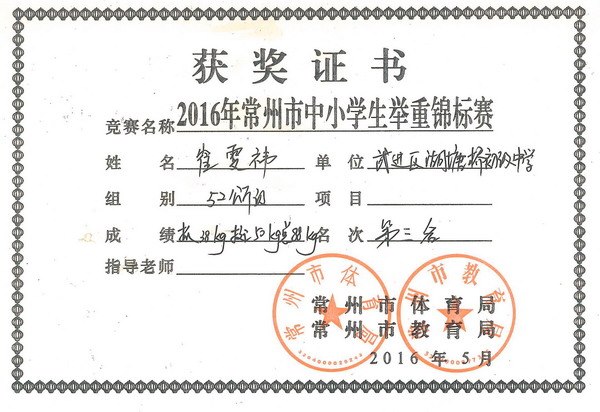 获奖证书
竞赛名称 2016年常州市中小学生举重锦标赛
姓名 崔雯祎 单位 武进区湖塘桥初级中学
组别 52 项目
成绩 抓38kg挺50kg总88kg 名次 第三名
指导老师
常州市体育局
常州市教育局
2016年5月
常州市体育局
常州市教育局